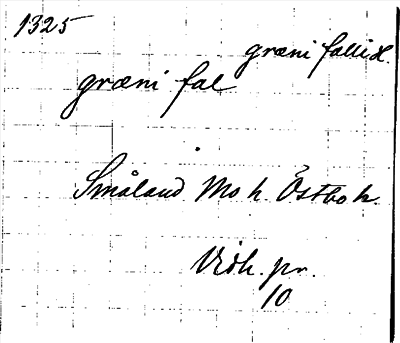 1325
græni fallid.
græni fal
Småland Mo h. Östbo h.
Vidh. pr.
10